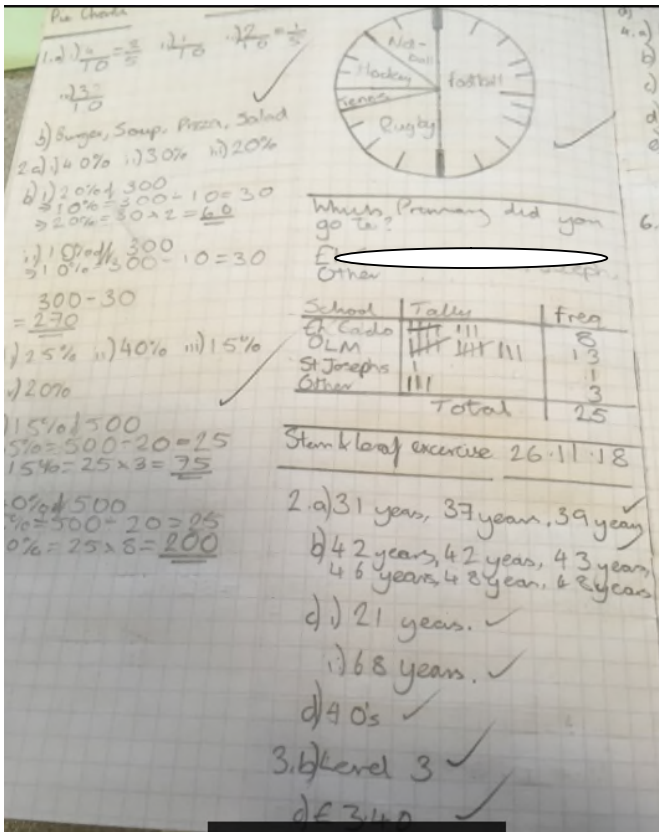 Pie Charts
1.a) i) 4/10 = 2/5 ii) 1/10 iii) 2/10 = 1/5
iv) 3/10
b) Burger, Soup, Pizza, Salad
2a) i) 40% ii) 30% iii) 20%
b) i) 20% of 300
→ 10% = 300 ÷ 10 = 30
→ 20% = 30 × 2 = 60
ii) 10% of 300
→ 10% = 300 ÷ 10 = 30
300 - 30
= 270
i) 25% ii) 40% iii) 15%
20%
15% of 500
5% = 500 ÷ 20 = 25
15% = 25 × 3 = 75
0% of 500
% = 500 ÷ 20 = 25
0% = 25 × 8 = 200
Netball
Hockey
Tennis
Rugby
Football
Which Primary did you
go to?
Other
School Tally freq
8
OLM 13
St Josephs 1
Other 3
Total 25
Stem & leaf excercise 26.11.18
2.a) 31 years, 37 years, 39 years
b) 42 years, 42 years, 43 years,
46 years, 48 years, 48 years
c) i) 21 years.
ii) 68 years.
d) 40's
3.b) Level 3
£3.40
4.a)
b)
c)
d)
e)
6.